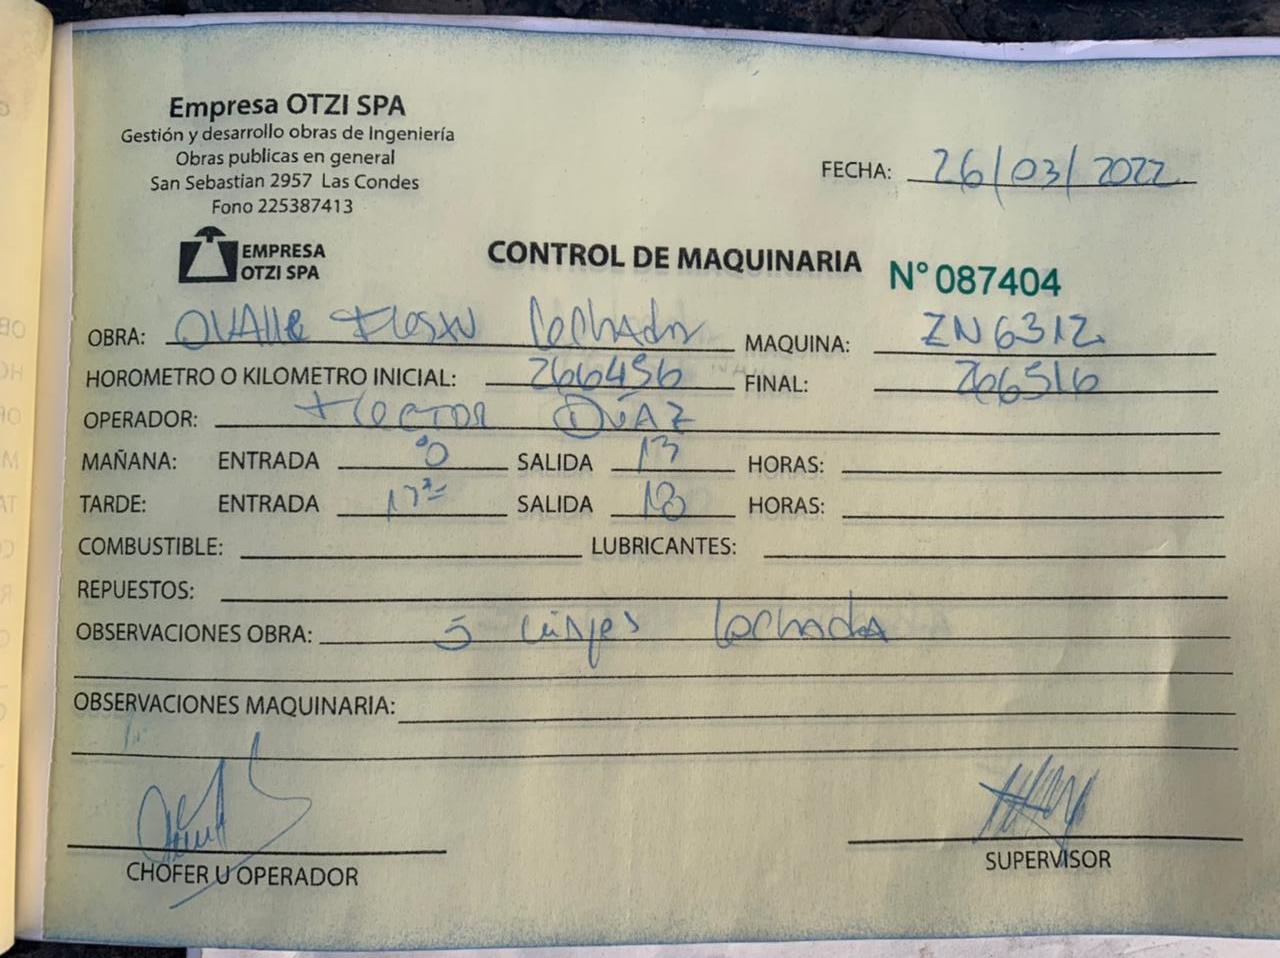 Empresa OTZI SPA
Gestión y desarrollo obras de Ingeniería
Obras publicas en general
San Sebastian 2957 Las Condes
Fono 225387413
FECHA: 26/03/2022
EMPRESA
OTZI SPA
CONTROL DE MAQUINARIA N° 087404
OBRA: OVAlle MAQUINA: ZN6312
HOROMETRO O KILOMETRO INICIAL: 266456 FINAL: 266516
OPERADOR: HECTOR DÍAZ
MAÑANA: ENTRADA SALIDA 13 HORAS:
TARDE: ENTRADA SALIDA 18 HORAS:
COMBUSTIBLE: LUBRICANTES:
REPUESTOS:
OBSERVACIONES OBRA: 5 viajes lechada
OBSERVACIONES MAQUINARIA:
CHOFER U OPERADOR
SUPERVISOR